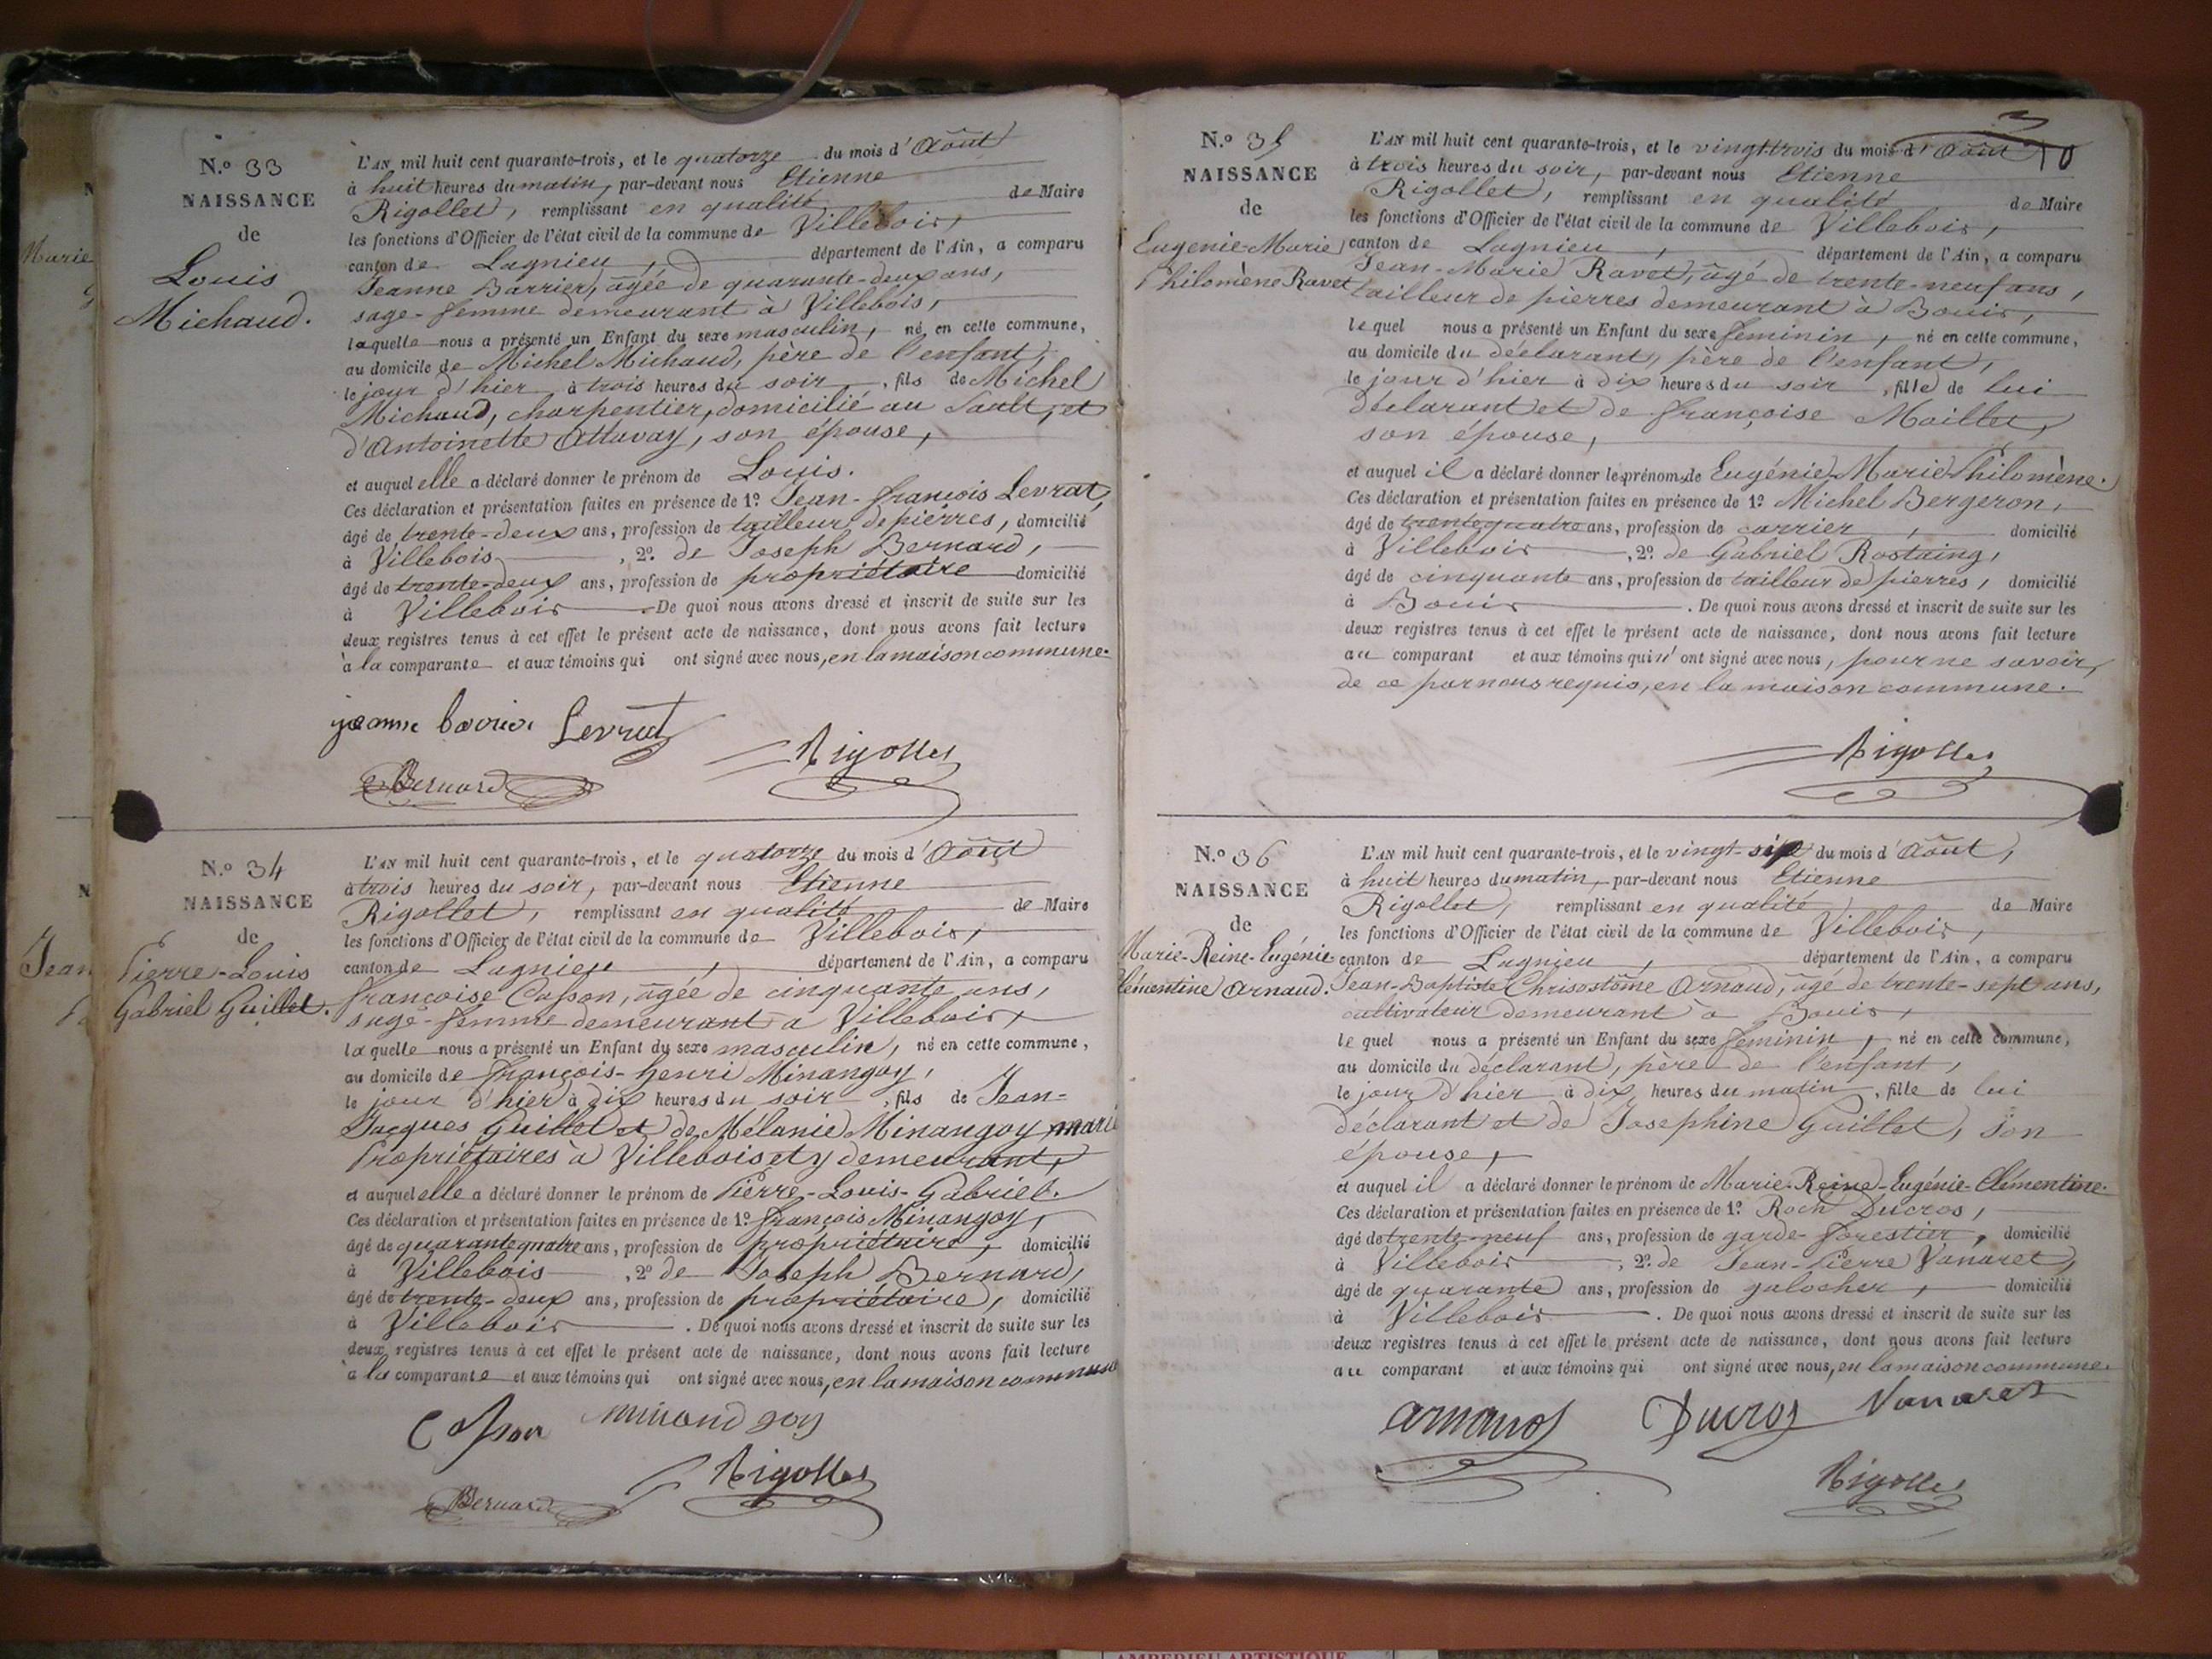 N.º 33
NAISSANCE
de
Louis
Michaud.
L'AN mil huit cent quarante-trois, et le quatorze du mois d'Août
à huit heures du matin, par-devant nous Etienne
Rigollet, remplissant en qualité de Maire
les fonctions d'Officier de l'état civil de la commune de Villebois,
canton de Lagnieu, département de l'Ain, a comparu
Jeanne Barrier, âgée de quarante-deux ans,
sage-femme demeurant à Villebois,
laquelle nous a présenté un Enfant du sexe masculin, né en cette commune,
au domicile de Michel Michaud, père de l'enfant,
le jour d'hier à trois heures du soir, fils de Michel
Michaud, charpentier, domicilié au Sault, et
d'Antoinette Attavay, son épouse,
et auquel elle a déclaré donner le prénom de Louis.
Ces déclaration et présentation faites en présence de 1º Jean-françois Levrat,
âgé de trente-deux ans, profession de tailleur de pierres, domicilié
à Villebois, 2º de Joseph Bernard,
âgé de trente-deux ans, profession de propriétaire domicilié
à Villebois. De quoi nous avons dressé et inscrit de suite sur les
deux registres tenus à cet effet le présent acte de naissance, dont nous avons fait lecture
à la comparante et aux témoins qui ont signé avec nous, en la maison commune.
jeanne barrier Levrat
Bernard Rigollet
N.º 34
NAISSANCE
de
Pierre-Louis
Gabriel Guillet.
L'AN mil huit cent quarante-trois, et le quatorze du mois d'Août
à trois heures du soir, par-devant nous Etienne
Rigollet, remplissant en qualité de Maire
les fonctions d'Officier de l'état civil de la commune de Villebois,
canton de Lagnieu, département de l'Ain, a comparu
françoise Casson, âgée de cinquante ans,
sage-femme demeurant à Villebois,
laquelle nous a présenté un Enfant du sexe masculin, né en cette commune,
au domicile de françois-henri Minangoy,
le jour d'hier à dix heures du soir, fils de Jean-
Jacques Guillet et de Mélanie Minangoy, marié
Propriétaires à Villebois et y demeurant,
et auquel elle a déclaré donner le prénom de Pierre-Louis-Gabriel.
Ces déclaration et présentation faites en présence de 1º françois Minangoy,
âgé de quarante quatre ans, profession de propriétaire, domicilié
à Villebois, 2º de Joseph Bernard,
âgé de trente-deux ans, profession de propriétaire, domicilié
à Villebois. De quoi nous avons dressé et inscrit de suite sur les
deux registres tenus à cet effet le présent acte de naissance, dont nous avons fait lecture
à la comparante et aux témoins qui ont signé avec nous, en la maison commune
Casson minandgoy
Bernard Rigollet
N.º 35
NAISSANCE
de
Eugénie-Marie
Philomène Ravet
L'AN mil huit cent quarante-trois, et le vingt-trois du mois d'Août 10
à trois heures du soir, par-devant nous Etienne
Rigollet, remplissant en qualité de Maire
les fonctions d'Officier de l'état civil de la commune de Villebois,
canton de Lagnieu, département de l'Ain, a comparu
Jean-Marie Ravet, âgé de trente-neuf ans,
tailleur de pierres demeurant à Bouis,
lequel nous a présenté un Enfant du sexe féminin, né en cette commune,
au domicile du déclarant, père de l'enfant,
le jour d'hier à dix heures du soir, fille de lui
déclarant et de françoise Maillet,
son épouse,
et auquel il a déclaré donner les prénoms de Eugénie-Marie-Philomène.
Ces déclaration et présentation faites en présence de 1º Michel Bergeron,
âgé de trente quatre ans, profession de carrier, domicilié
à Villebois, 2º de Gabriel Rostaing,
âgé de cinquante ans, profession de tailleur de pierres, domicilié
à Bouis. De quoi nous avons dressé et inscrit de suite sur les
deux registres tenus à cet effet le présent acte de naissance, dont nous avons fait lecture
au comparant et aux témoins qui n'ont signé avec nous, pour ne savoir,
de ce par nous requis, en la maison commune.
Rigollet
N.º 36
NAISSANCE
de
Marie-Reine-Eugénie-
Clémentine Arnaud.
L'AN mil huit cent quarante-trois, et le vingt-six du mois d'Août,
à huit heures du matin, par-devant nous Etienne
Rigollet, remplissant en qualité de Maire
les fonctions d'Officier de l'état civil de la commune de Villebois,
canton de Lagnieu, département de l'Ain, a comparu
Jean-Baptiste Chrisostôme Arnaud, âgé de trente-sept ans,
cultivateur demeurant à Bouis,
lequel nous a présenté un Enfant du sexe féminin, né en cette commune,
au domicile du déclarant, père de l'enfant,
le jour d'hier à dix heures du matin, fille de lui
déclarant et de Josephine Guillet, son
épouse,
et auquel il a déclaré donner le prénom de Marie-Reine-Eugénie-Clémentine.
Ces déclaration et présentation faites en présence de 1º Roch Ducros,
âgé de trente-neuf ans, profession de garde-forestier, domicilié
à Villebois, 2º de Jean-Pierre Vanaret,
âgé de quarante ans, profession de galocher, domicilié
à Villebois. De quoi nous avons dressé et inscrit de suite sur les
deux registres tenus à cet effet le présent acte de naissance, dont nous avons fait lecture
au comparant et aux témoins qui ont signé avec nous, en la maison commune.
Arnaud Ducros Vanaret
Rigollet